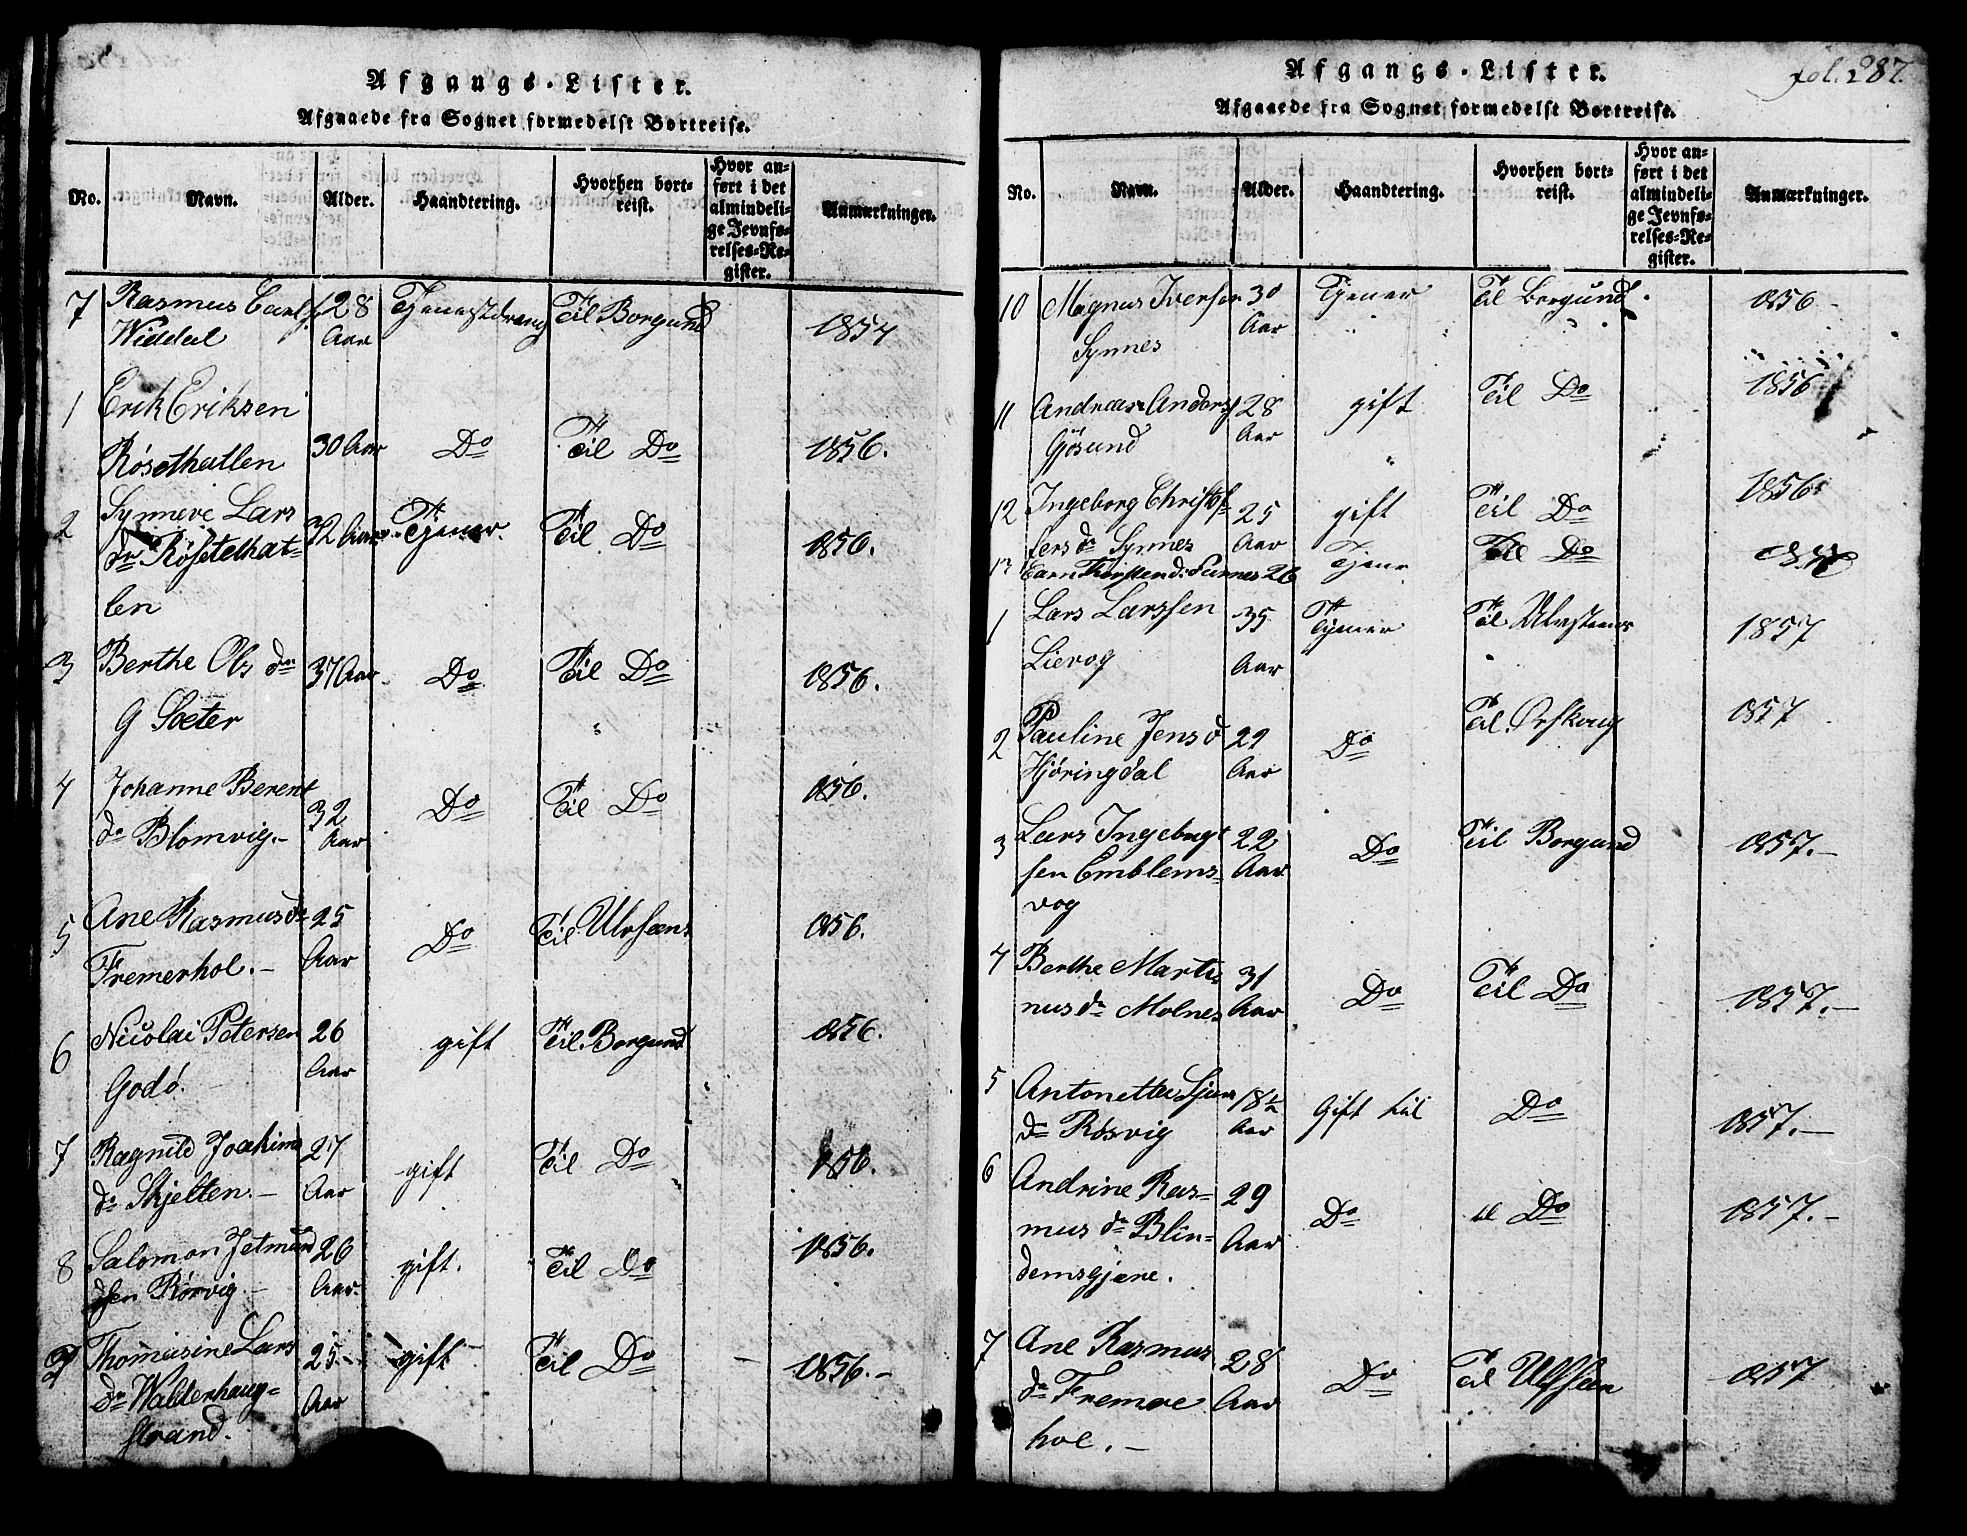 Afgangs-Lister.
Afgaaede fra Sognet formedelst Bortreise.
No. Navn. Alder. Haandtering. Hvorhen bortreist. Hvor anført i det almindelige Jevnførelses-Register. Anmærkninger.
7 Rasmus Carls 28 Tjenestdreng Til Borgund 1857
Widdal Aar
1 Erik Eriksen
Røsethatlen 30 Aar Do Til Do 1856.
2 Synneve Lars 32 Aar Tjener. Til Do 1856.
dr Røsetehat=
len
3 Berthe Ols dr 37 Aar Do Til Do 1856.
G Sæter
4 Johanne Berent 32 Do Til Do 1856.
dr Blomvig.- Aar
5 Ane Rasmusdr 25 Do Til 1856.
Fremerhol.- Aar
6 Nicolai Petersen 26 gift Til Borgund 1856.
Godø. Aar
7 Ragnild Joakims 27 gift Til Do 1856.
dr Skjelten.- Aar
8 Salomon Jetmund 26 gift. Til Do 1856.
sen Rørvig.- Aar
9 Thomasine Lars 25 gift Til Do 1856.-
dr Walderhaug= Aar
strand.
Afgangs-Lister.
fol. 287.
Afgaaede fra Sognet formedelst Bortreise.
No. Navn. Alder. Haandtering. Hvorhen bortreist. Hvor anført i det almindelige Jevnførelses-Register. Anmærkninger.
10 Magnus Iversen 30 Tjener Til Borgund. 1856-
Synnes Aar
11 Andreas Anders 28 gift Til Do 1856
Gjøsund Aar
12 Ingeborg Christof= 25 gift Til Do 1856
fers dr Synnes Aar
26 Tjener Til Do
1 Lars Larssen 35 Tjener Til 1857
Lievog Aar
2 Pauline Jens d 22 Do Til Ørskoug 1857
Hjøringdal Aar
3 Lars Ingebrigt 22 Do Til Borgund 1857.-
sen Emblems= Aar
vog
4 Berthe Marti 31 Do Til Do 1857.-
nus dr Molnes Aar
5 Antonette 18½ Gift til Do 1857.-
dr Røsvig Aar
6 Andrine Ras= 29 Do til Do 1857.-
mus dr Blin= Aar
demsgjære.
7 Ane Rasmus 28 Do Til 1857
dr Fremre Aar
hol.-